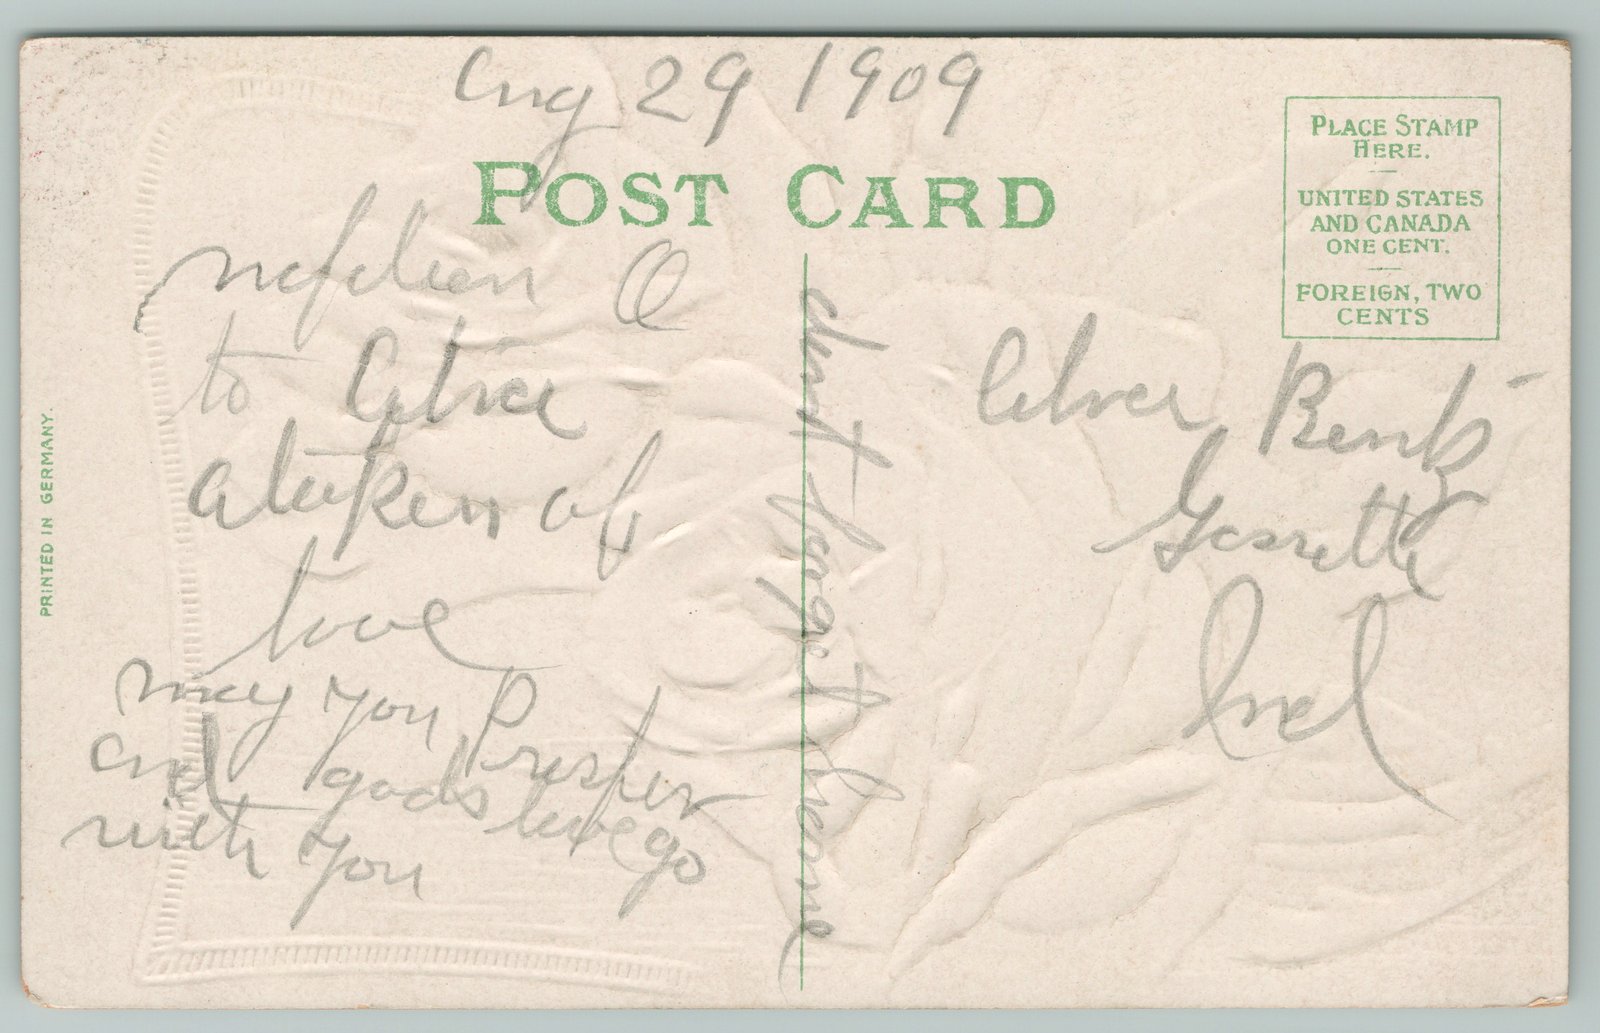 Aug 29 1909
POST CARD
PLACE STAMP
HERE.
UNITED STATES
AND CANADA
ONE CENT.
FOREIGN, TWO
CENTS
PRINTED IN GERMANY.
to
a token of
love
may you Prosper
and gods love go
with you
dont forget
Garrett
Ind